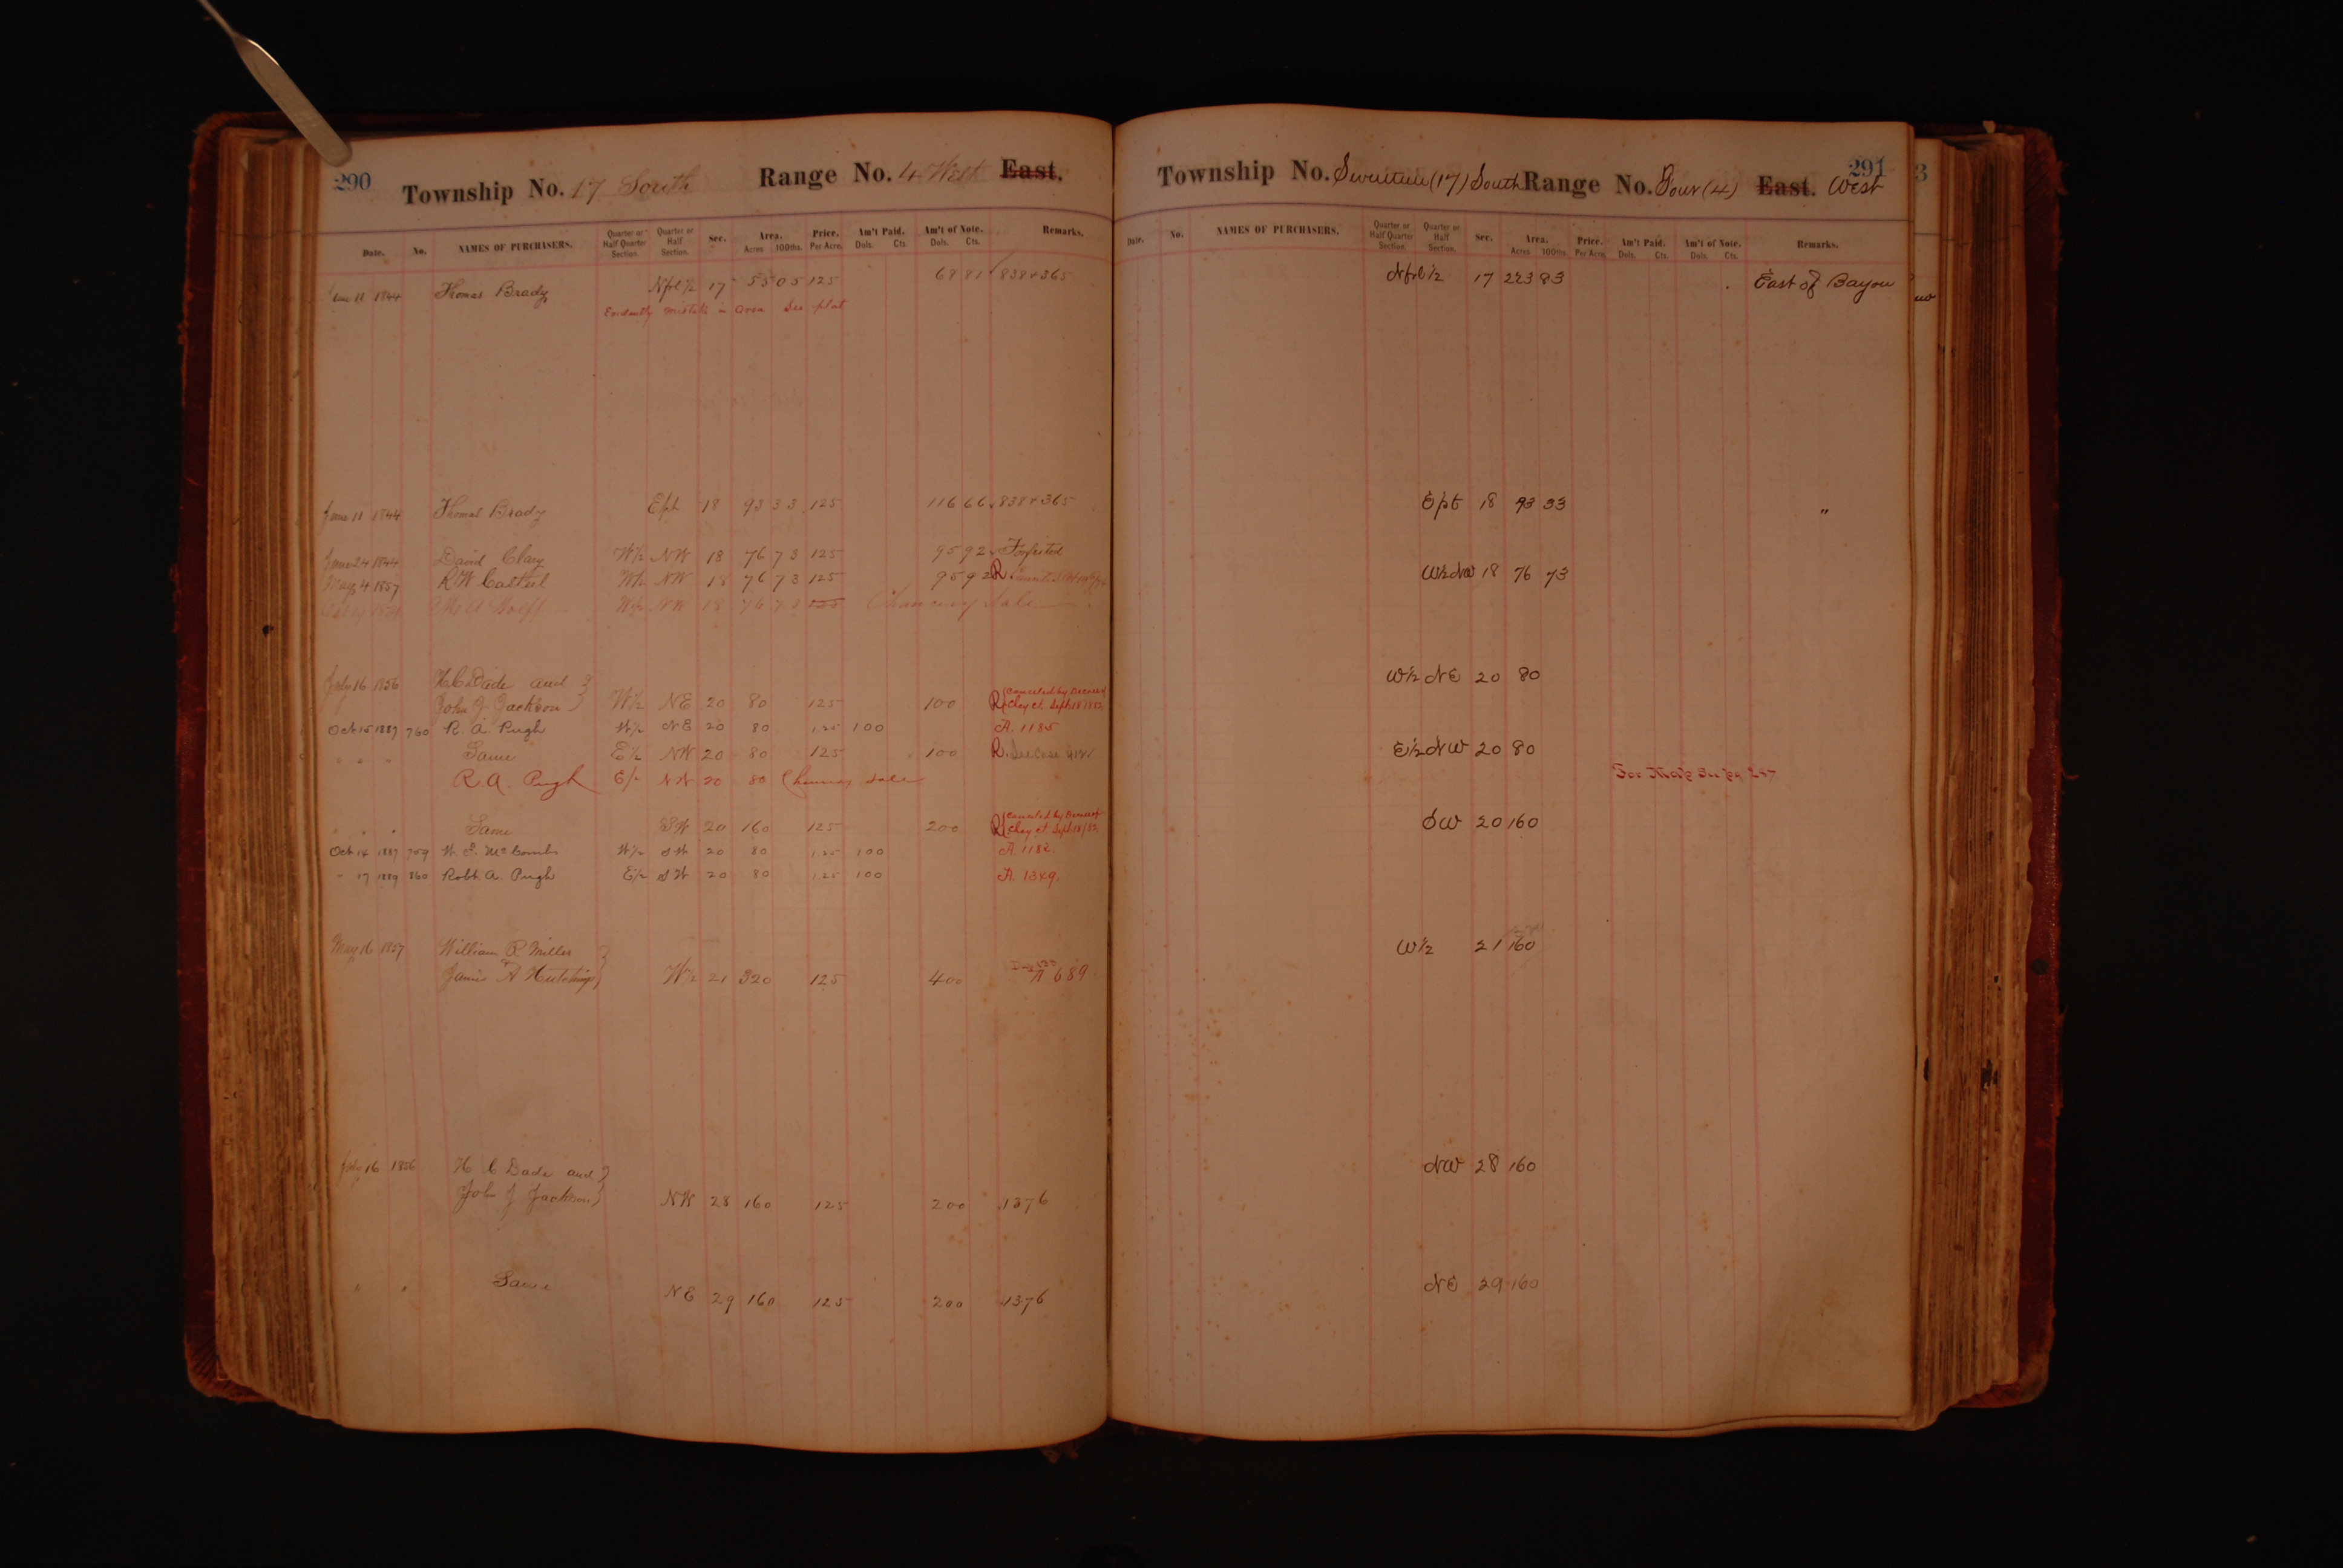 290 Township No. 17 South Range No. 4 West East.
Date. No. NAMES OF PURCHASERS. Quarter or Half Quarter Section. Quarter or Half Section. Sec. Area. Acres 100ths. Price. Per Acre. Am't Paid. Dols. Cts. Am't of Note. Dols. Cts. Remarks.
June 11 1844 Thomas Brady Nfrl ½ 17 55 05 125 68 81 838+365
Evidently mistake in area See plat
June 11 1844 Thomas Brady E pt 18 93 33 125 116 66 838+365
June 24 1844 David Clary W½ NW 18 76 73 125 95 92 Forfeited
May 4 1857 R W W½ NW 18 76 73 125 95 92 R
W½ NW 18 76 73 125 Chancery Sale
July 16 1856 H C Dade and
John J Jackson W½ NE 20 80 125 100 R Canceled by Decree of Chcy ct. Sept 18 1882
Oct 15 1887 760 R. A. Pugh W½ NE 20 80 125 100 A. 1185
" " " Same E½ NW 20 80 125 100 R.
R. A. Pugh E½ NW 20 80 Chancery sale
" " " Same SW 20 160 125 200 R Canceled by Decree of Chcy ct. Sept 18/82
Oct 14 1887 759 W. McCombs W½ SW 20 80 125 100 A. 1182.
" 17 1889 860 Robt. A. Pugh E½ SW 20 80 125 100 A. 1349.
May 16 1857 William R Miller
James A Hutchings W½ 21 320 125 400 A 689
July 16 1856 H C Dade and
John J Jackson NW 28 160 125 200 1376
" " Same NE 29 160 125 200 1376
Township No. Seventeen (17) South Range No. Four (4) East. West 291
Date. No. NAMES OF PURCHASERS. Quarter or Half Quarter Section. Quarter or Half Section. Sec. Area. Acres 100ths. Price. Per Acre. Am't Paid. Dols. Cts. Am't of Note. Dols. Cts. Remarks.
Nfrl ½ 17 223 83 East of Bayou
E pt 18 93 33 "
W½ NW 18 76 73
W½ NE 20 80
E½ NW 20 80
For See pg
SW 20 160
W½ 21 160
NW 28 160
NE 29 160
3